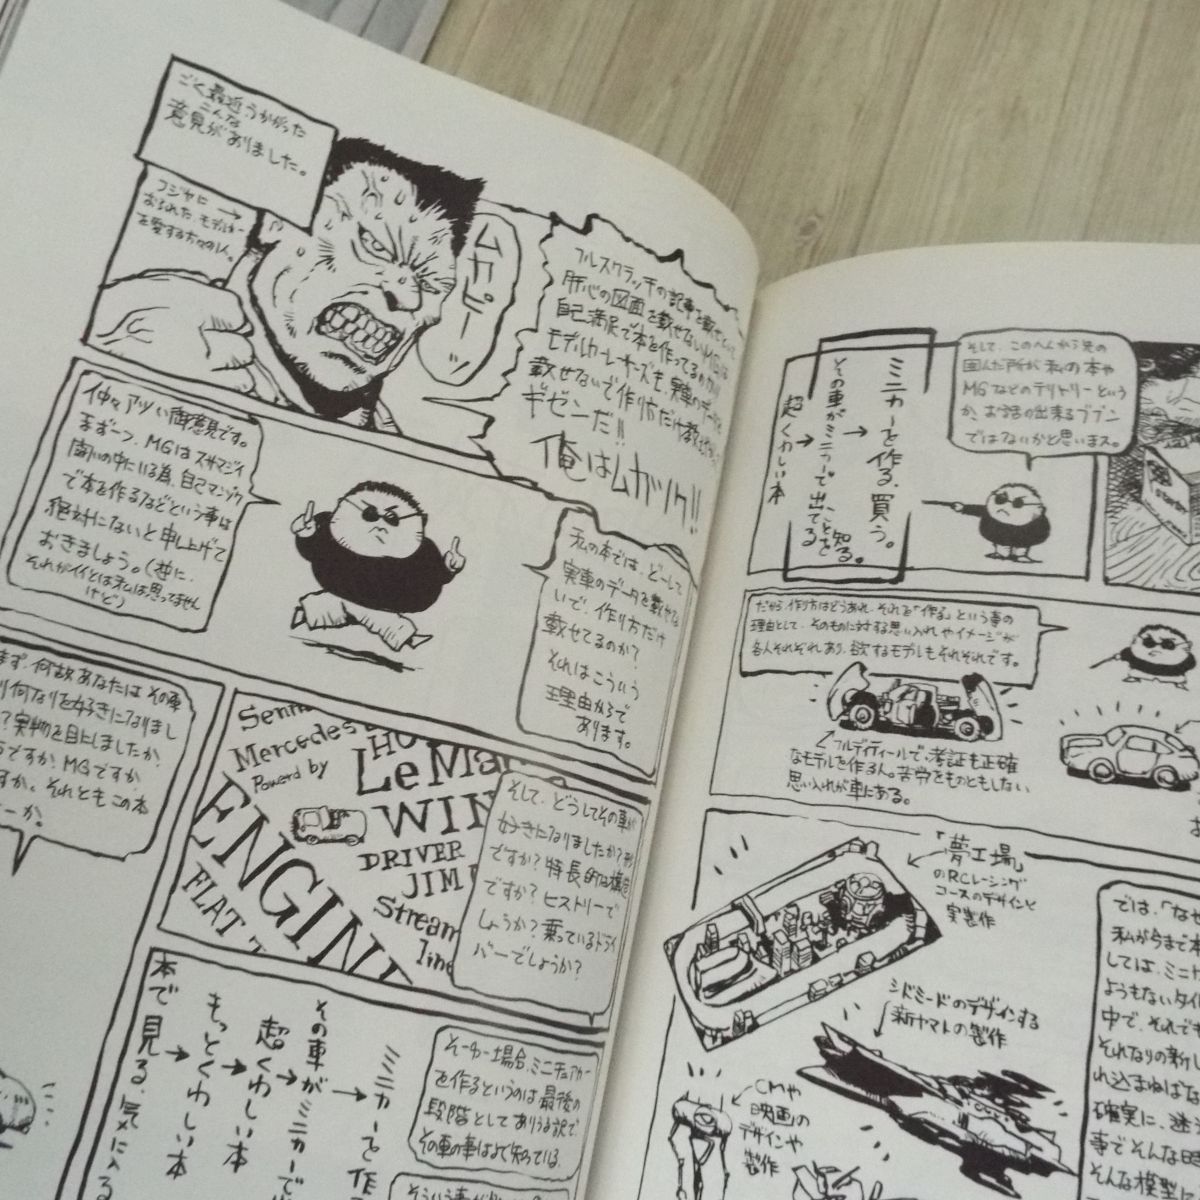 ごく最近うかがった
こんな
意見がありました。
フジヤに
おられた モデルカー
を愛する方々の1人。
ムカピーッ
フルスクラッチの記事を載せといて
肝心の図面を載せないMGは
自己満足で本を作ってるのか!!
モデルカーレーサーズも、実車のデータを
載せないで作り方だけ
ギゼンだ!!
俺はムカツク!!
仲々アツい御意見です。
まず一つ、MGはスサマジイ
闘いの中にいる為、自己マンゾク
で本を作るなどという事は
絶対にないと申し上げて
おきましょう。(逆に、
それがイイとは私は思ってません
けど)
私の本では、どーして
実車のデータを載せな
いで、作り方だけ
載せてるのか?
それはこういう
理由からで
あります。
まず、何故あなたは その車
何なりを好きになりまし
?実物を目にしましたか、
ですか、MGですか、
すか。それともこの本
ーか。
Mercedes
Powered by
Le Ma
WIN
ENGIN
DRIVER
JIM
FLAT
Stream
line
そして、どうしてその車が
好きになりましたか?形
ですか?特長的な構造
ですか?ヒストリーで
しょうか?乗っているドライ
バーでしょうか?
そーゆー場合、ミニチュアカー
を作るというのは最後の
段階としてありうる訳で、
その車の事はよく知っている。
ミニカーを作
→
その車がミニカーで出
→
超くわしい本
→
もっとくわしい本
→
本で見る、気に入る
そして、このへんから先の
囲んだ所が私の本や
MGなどのテリトリーという
か、お話の出来るブブン
ではないかと思いまス。
ミニカーを作る、買う。
→
その車がミニカーで出てる
ことを知る。
→
超くわしい本
だから、作り方はどうあれ、それを「作る」という事の
理由として、そのものに対する思い入れやイメージが
各人それぞれあり、欲するモデルもそれぞれです。
フルディティールで、考証も正確
なモデルを作る人。苦労をものともしない
思い入れが車にある。
「夢工場」
のRCレーシング
コースのデザインと
実製作
シドミードのデザインする
新ヤマトの製作
CMや
映画の
デザインや
製作
では、「な
私が今まで本
しては、ミニ
ようもないタイ
中で、それで
それなりの新し
れ込まねばな
確実に、迷
事でそんな時
そんな模型